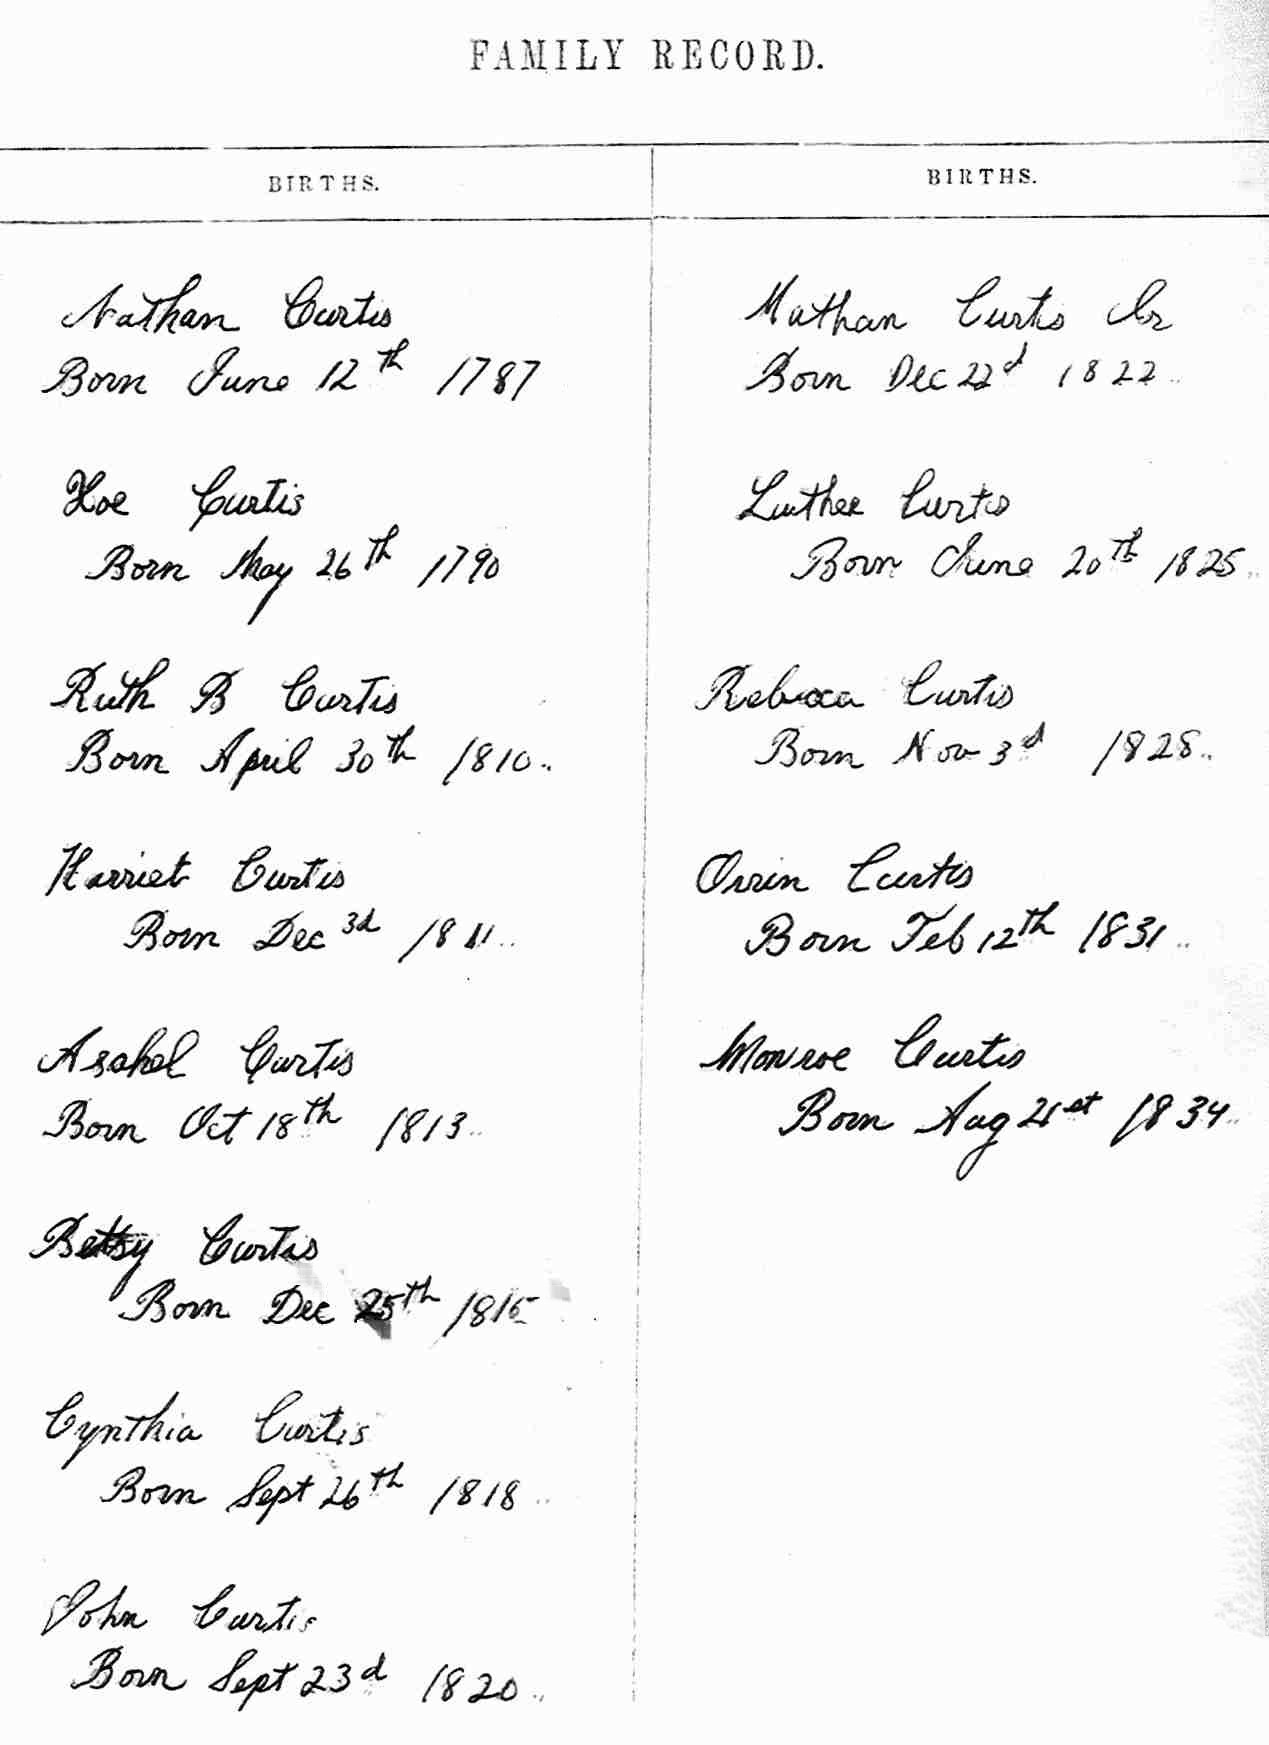 FAMILY RECORD.
BIRTHS.
Nathan Curtis
Born June 12th 1787
Zoe Curtis
Born May 26th 1790
Ruth B Curtis
Born April 30th 1810..
Harriet Curtis
Born Dec 3d 1811..
Asahel Curtis
Born Oct 18th 1813..
Betsy Curtis
Born Dec 25th 1815
Cynthia Curtis
Born Sept 26th 1818..
John Curtis
Born Sept 23d 1820..
BIRTHS.
Nathan Curtis Jr
Born Dec 22d 1822..
Luther Curtis
Born June 20th 1825..
Rebecca Curtis
Born Nov 3d 1828..
Orrin Curtis
Born Feb 12th 1831..
Monroe Curtis
Born Aug 21st 1834..